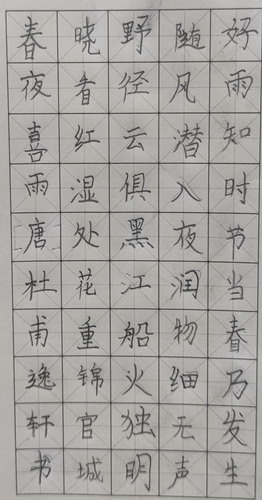 好雨知时节当春乃发生
随风潜入夜润物细无声
野径云俱黑江船火独明
晓看红湿处花重锦官城
春夜喜雨唐杜甫逸轩书